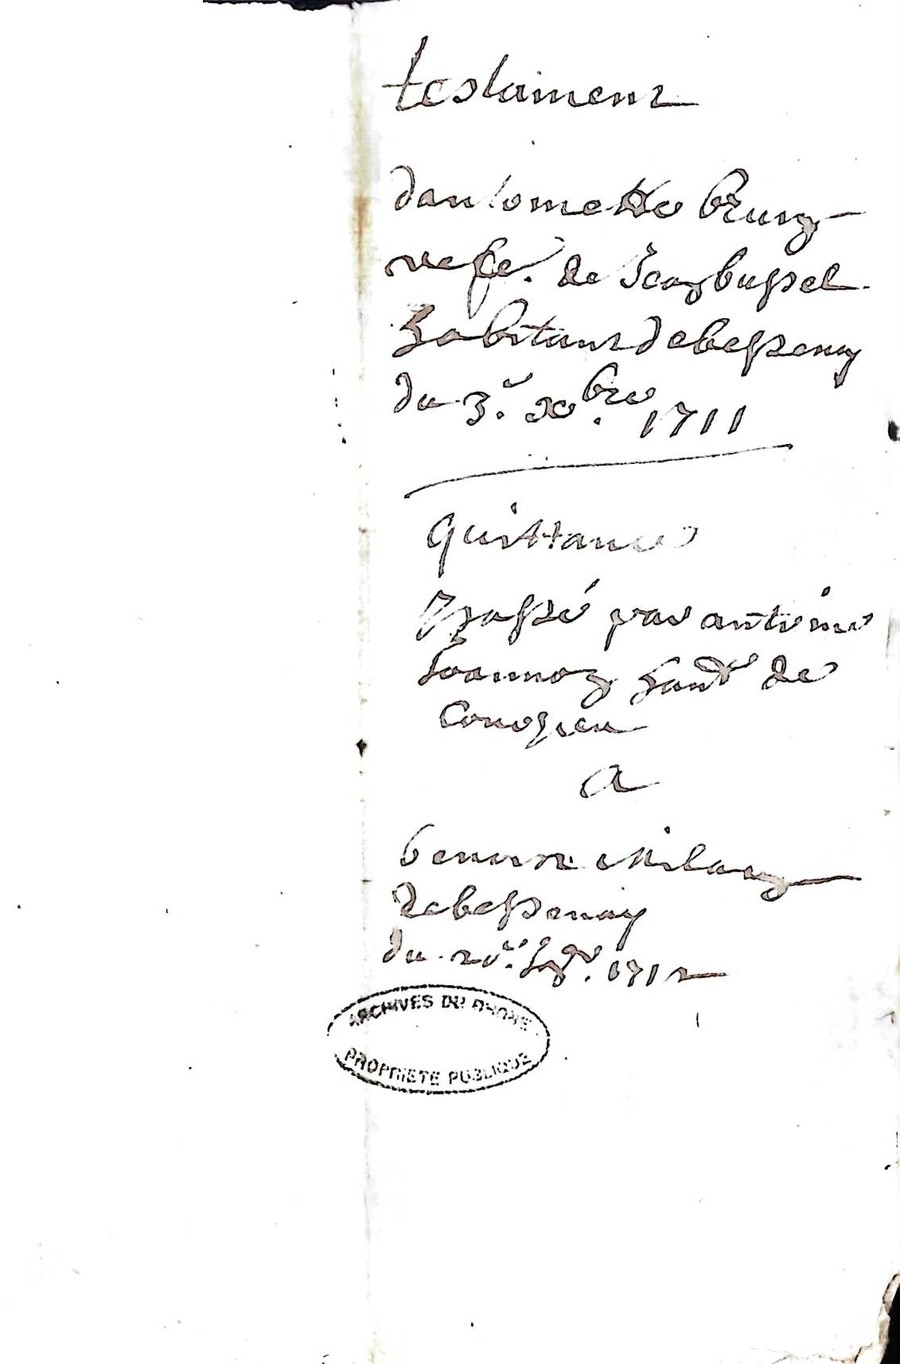 testament
dantoinette bruny
vefve. de Jean bussel
habitant de bessenay
du 3.e xbre. 1711
quittance
passé par antoine
Joannon hant de
Courzieu
A
benoist Milan
de bessenay
du 1712
ARCHIVES DU RHONE
PROPRIETE PUBLIQUE